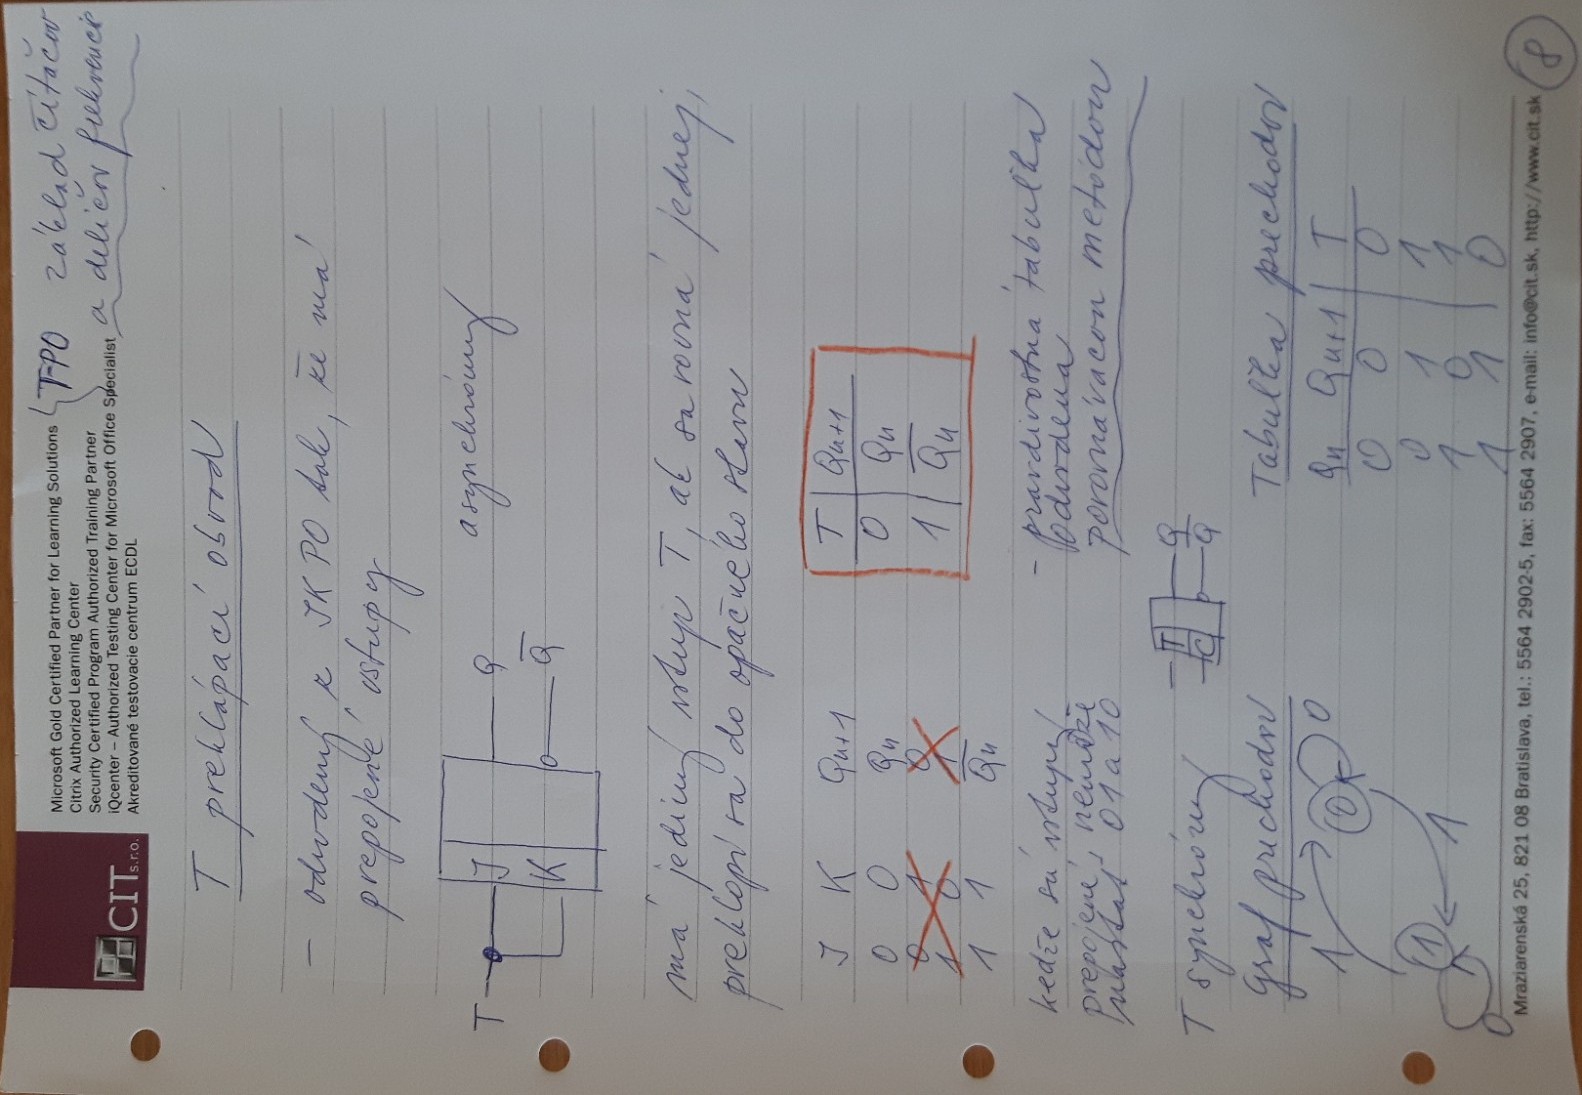 Microsoft Gold Certified Partner for Learning Solutions
Citrix Authorized Learning Center
Security Certified Program Authorized Training Partner
iQcenter – Authorized Testing Center for Microsoft Office Specialist
Akreditované testovacie centrum ECDL
CIT s.r.o.
T-PO základ čítačov
a deličov frekvencie
T preklápací obvod
– odvodený z JK PO tak, že má
prepojené vstupy
T J Q asynchrónny
K Q̅
má jediný vstup T, ak sa rovná jednej,
preklopí sa do opačného stavu
J K Qn+1
0 0 Qn
0 1 0
1 0 1
1 1 Q̅n
T Qn+1
0 Qn
1 Q̅n
keďže sú vstupy
prepojené, nemôže
nastať 01 a 10
- pravdivostná tabuľka
odvodená
porovnávacou metódou
T synchrónny T Q
C Q̅
Graf prechodov
1 0 0
1 1
0
Tabuľka prechodov
Qn Qn+1 T
0 0 0
0 1 1
1 0 1
1 1 0
Mraziarenská 25, 821 08 Bratislava, tel.: 5564 2902-5, fax: 5564 2907, e-mail: info@cit.sk, http://www.cit.sk
8